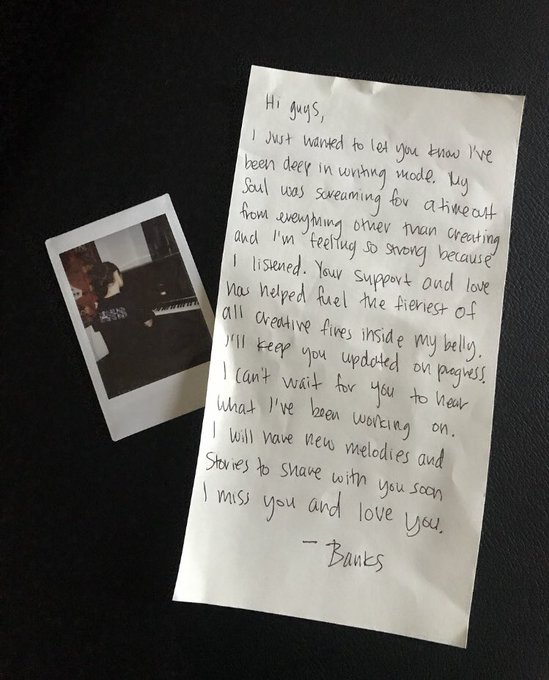 Hi guys,
I just wanted to let you know I've
been deep in writing mode. My
soul was screaming for a timeout
from everything other than creating
and I'm feeling so strong because
I listened. Your support and love
has helped fuel the fieriest of
all creative fires inside my belly.
I'll keep you updated on progress.
I can't wait for you to hear
what I've been working on.
I will have new melodies and
stories to share with you soon
I miss you and love you.
— Banks